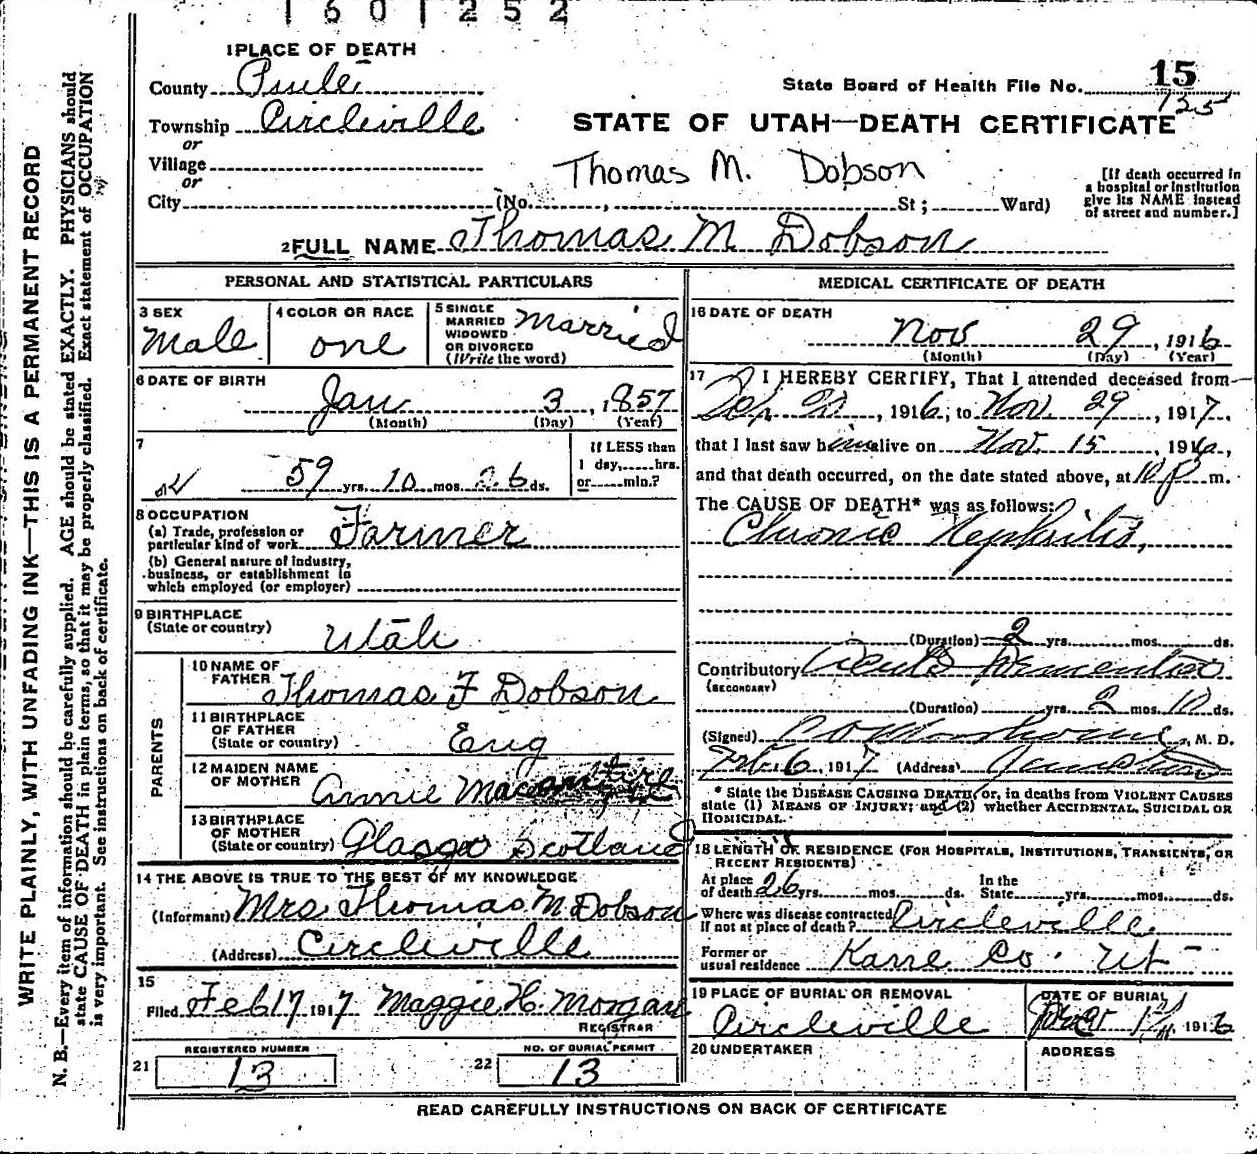 1 6 0 1 2 5 2
1 PLACE OF DEATH
County Piute
Township Circleville
or
Village
or
City (No. , St ; Ward)
State Board of Health File No. 15
125
STATE OF UTAH—DEATH CERTIFICATE
Thomas M. Dobson
[If death occurred in
a hospital or institution
give its NAME instead
of street and number.]
2 FULL NAME Thomas M Dobson
PERSONAL AND STATISTICAL PARTICULARS
3 SEX
Male
4 COLOR OR RACE
one
5 SINGLE
MARRIED
WIDOWED
OR DIVORCED
(Write the word)
Married
6 DATE OF BIRTH
Jan 3, 1857
(Month) (Day) (Year)
7
59 yrs. 10 mos. 26 ds.
If LESS than
1 day, hrs.
or min.?
8 OCCUPATION
(a) Trade, profession or
particular kind of work Farmer
(b) General nature of industry,
business, or establishment in
which employed (or employer)
9 BIRTHPLACE
(State or country)
Utah
PARENTS
10 NAME OF
FATHER
Thomas F Dobson
11 BIRTHPLACE
OF FATHER
(State or country) Eng
12 MAIDEN NAME
OF MOTHER Annie
13 BIRTHPLACE
OF MOTHER
(State or country) Glasgo Scotland
14 THE ABOVE IS TRUE TO THE BEST OF MY KNOWLEDGE
(Informant) Mrs Thomas M Dobson
(Address) Circleville
15
Filed Feb 17 1917 Maggie H. Morgan
REGISTRAR
REGISTERED NUMBER
21 13
NO. OF BURIAL PERMIT
22 13
MEDICAL CERTIFICATE OF DEATH
16 DATE OF DEATH
Nov 29, 1916
(Month) (Day) (Year)
17 I HEREBY CERTIFY, That I attended deceased from
, 1916, to Nov. 29, 1917,
that I last saw him alive on Nov. 15, 1916,
and that death occurred, on the date stated above, at 10 P m.
The CAUSE OF DEATH* was as follows:
Chronic Nephritis,
(Duration) 2 yrs. mos. ds.
Contributory Acute Dementia
(SECONDARY)
(Duration) yrs. 2 mos. 10 ds.
(Signed) , M. D.
Feb 6, 1917 (Address) Junction
* State the DISEASE CAUSING DEATH, or, in deaths from VIOLENT CAUSES
state (1) MEANS OF INJURY; and (2) whether ACCIDENTAL, SUICIDAL OR
HOMICIDAL.
18 LENGTH OF RESIDENCE (FOR HOSPITALS, INSTITUTIONS, TRANSIENTS, OR
RECENT RESIDENTS)
At place
of death 26 yrs. mos. ds.
In the
State yrs. mos. ds.
Where was disease contracted
if not at place of death? Circleville
Former or
usual residence Kane Co. Ut
19 PLACE OF BURIAL OR REMOVAL
Circleville
DATE OF BURIAL
1916
20 UNDERTAKER
ADDRESS
READ CAREFULLY INSTRUCTIONS ON BACK OF CERTIFICATE
WRITE PLAINLY, WITH UNFADING INK—THIS IS A PERMANENT RECORD
N. B.—Every item of information should be carefully supplied. AGE should be stated EXACTLY. PHYSICIANS should
state CAUSE OF DEATH in plain terms, so that it may be properly classified. Exact statement of OCCUPATION
is very important. See instructions on back of certificate.